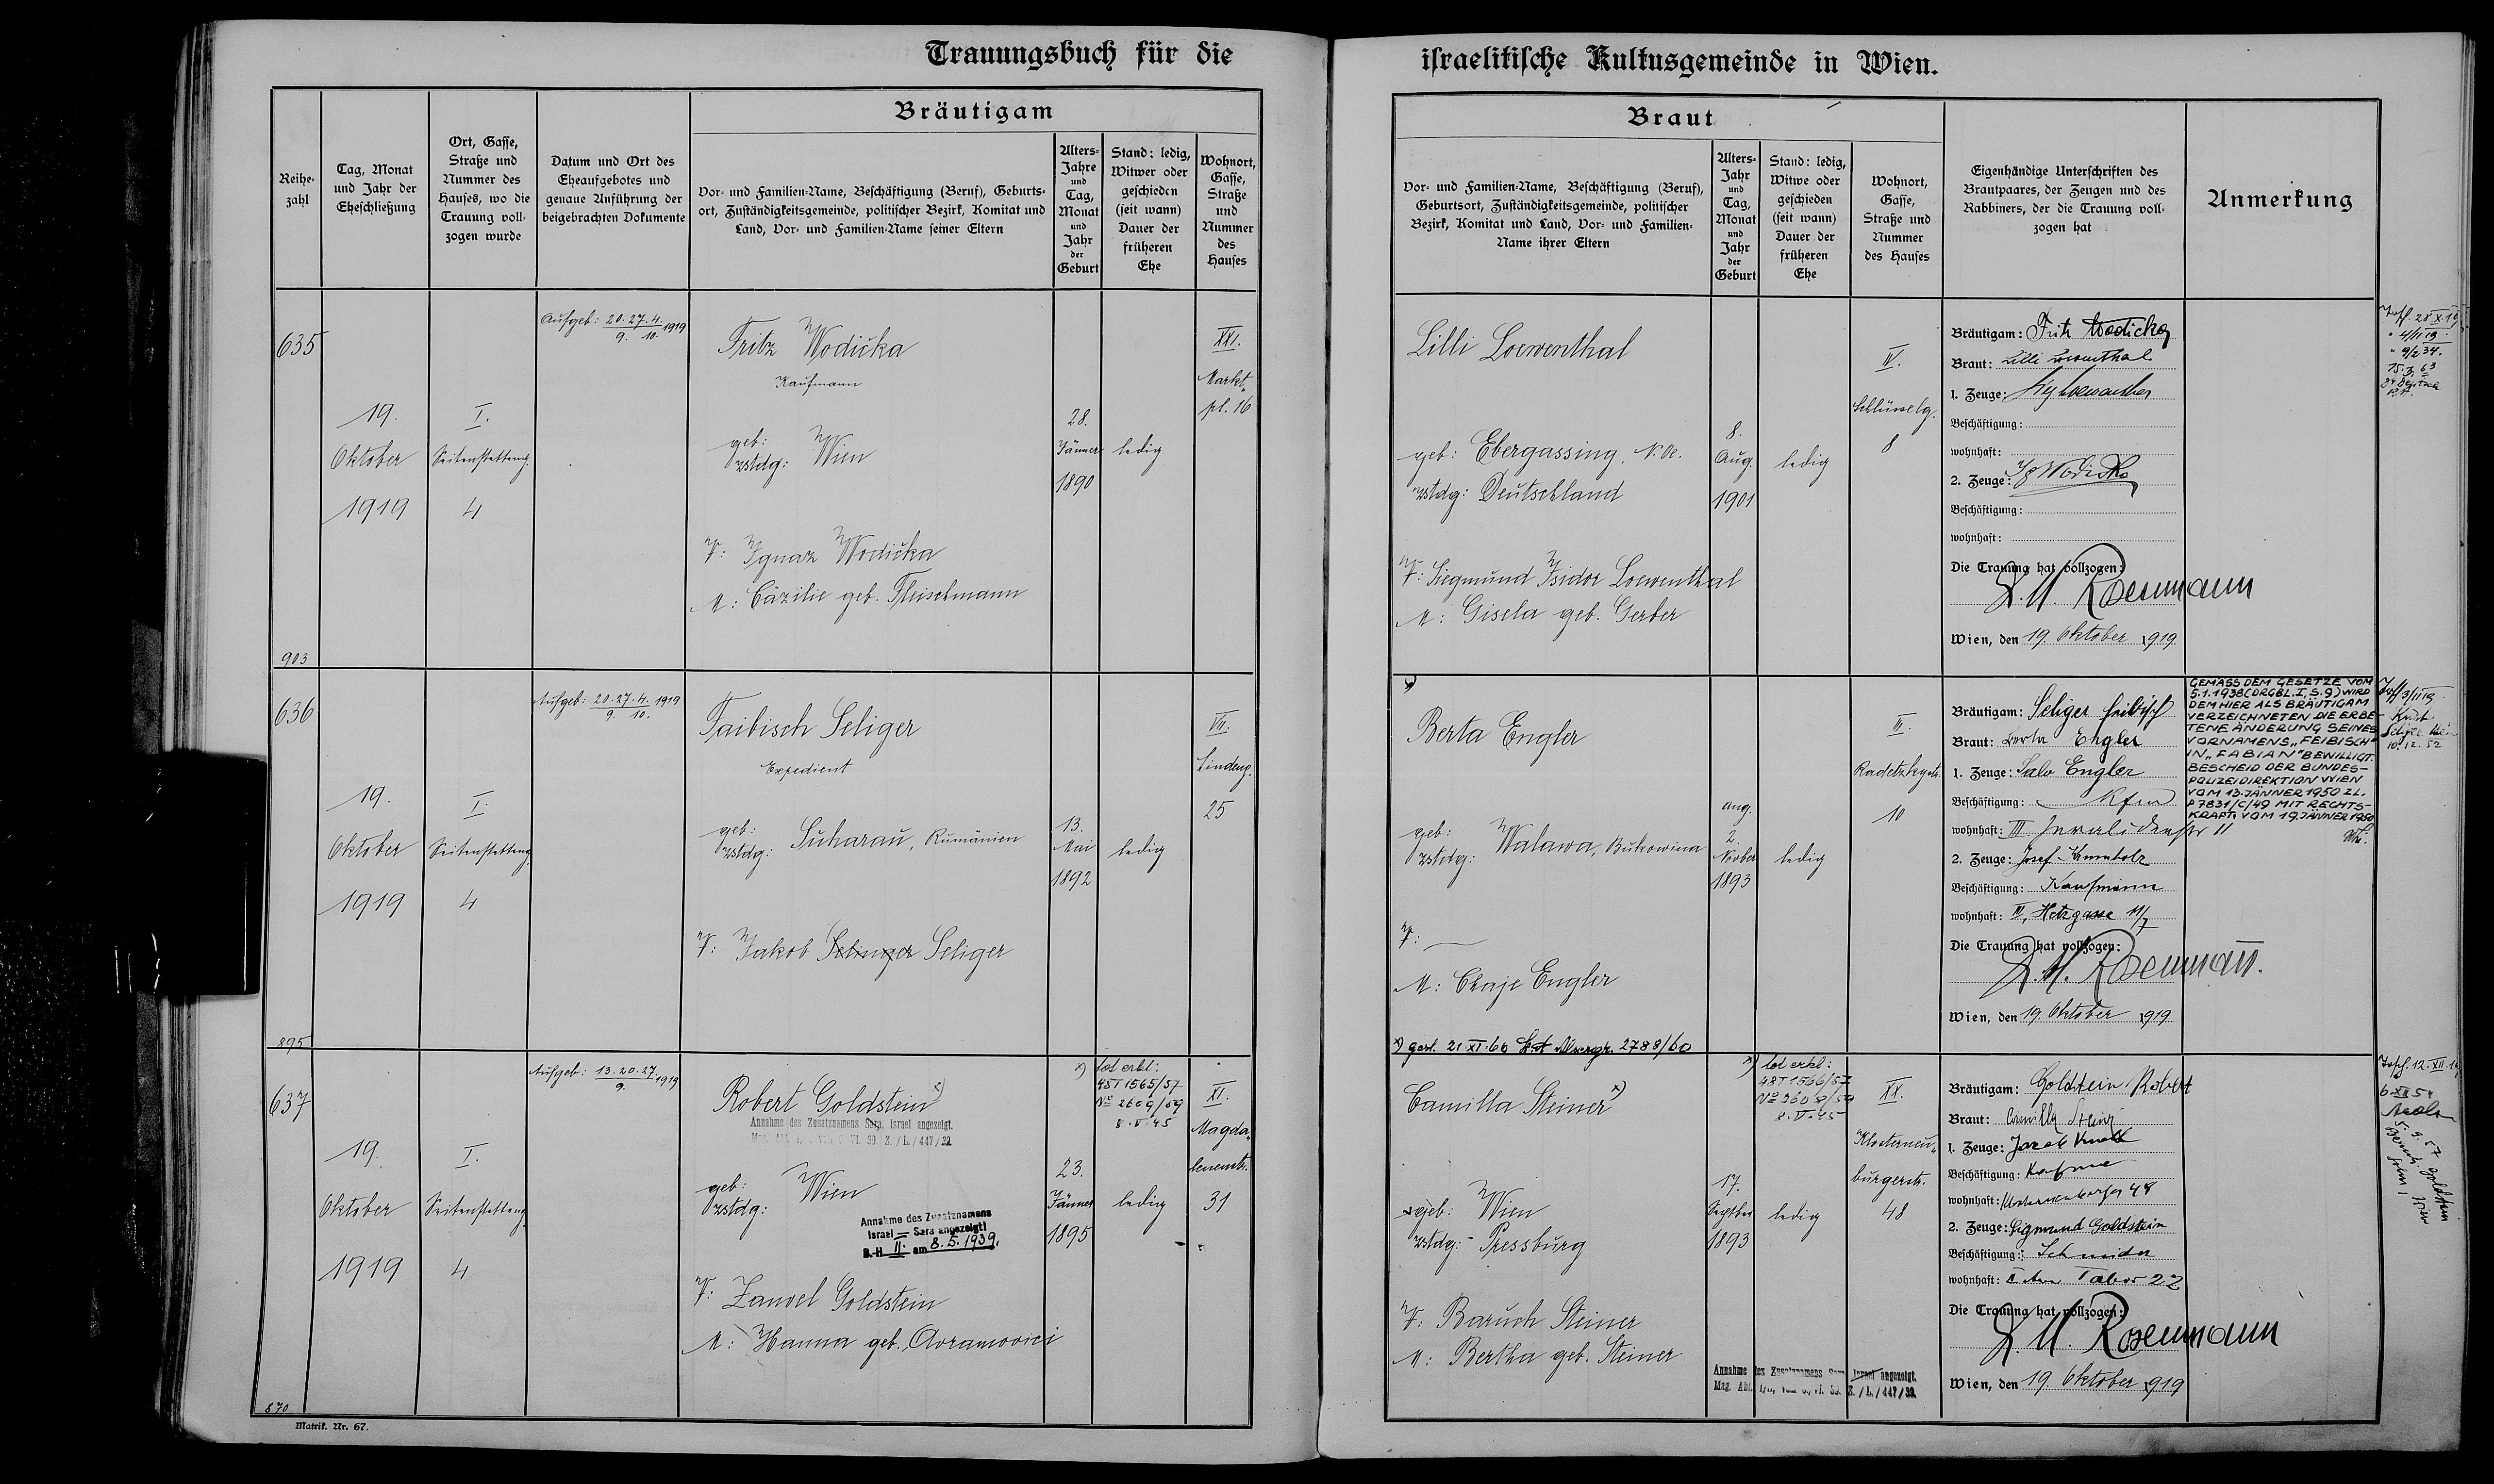 Trauungsbuch für die israelitische Kultusgemeinde in Wien.
Reihe-
zahl
Tag, Monat
und Jahr der
Eheschließung
Ort, Gasse,
Straße und
Nummer des
Hauses, wo die
Trauung voll-
zogen wurde
Datum und Ort des
Eheaufgebotes und
genaue Anführung der
beigebrachten Dokumente
Bräutigam
Vor- und Familien-Name, Beschäftigung (Beruf), Geburts-
ort, Zuständigkeitsgemeinde, politischer Bezirk, Komitat und
Land, Vor- und Familien-Name seiner Eltern
Alters-
Jahre
und
Tag,
Monat
und
Jahr
der
Geburt
Stand: ledig,
Witwer oder
geschieden
(seit wann)
Dauer der
früheren
Ehe
Wohnort,
Gasse,
Straße
und
Nummer
des
Hauses
Braut
Vor- und Familien-Name, Beschäftigung (Beruf),
Geburtsort, Zuständigkeitsgemeinde, politischer
Bezirk, Komitat und Land, Vor- und Familien-
Name ihrer Eltern
Alters-
Jahr
und
Tag,
Monat
und
Jahr
der
Geburt
Stand: ledig,
Witwe oder
geschieden
(seit wann)
Dauer der
früheren
Ehe
Wohnort,
Gasse,
Straße und
Nummer
des Hauses
Eigenhändige Unterschriften des
Brautpaares, der Zeugen und des
Rabbiners, der die Trauung voll-
zogen hat
Anmerkung
635
903
19.
Oktober
1919
I.
Seitenstetteng.
4
Aufgeb: 20. 27. 4. 1919
9. 10.
Fritz Wodička
Kaufmann
geb:
zstdg: Wien
V: Ignaz Wodička
M: Cäzilie geb. Fleischmann
28.
Jänner
1890
ledig
XXI.
Markt-
pl. 16
Lilli Loewenthal
geb: Ebergassing, N.Oe.
zstdg: Deutschland
V: Siegmund Isidor Loewenthal
M: Gisela geb. Gerber
8.
Aug.
1901
ledig
IV.
Schlüsselg.
8
Bräutigam: Fritz Wodicka
Braut: Lilli Loewenthal
1. Zeuge:
Beschäftigung:
wohnhaft:
2. Zeuge: Ig Wodicka
Beschäftigung:
wohnhaft:
Die Trauung hat vollzogen:
D. M. Rosenmann
Wien, den 19. Oktober 1919
28 X 19
9/2 34.
636
895
19.
Oktober
1919
I.
Seitenstetteng.
4
Aufgeb: 20. 27. 4. 1919
9. 10.
Faibisch Seliger
Expedient
geb:
zstdg: Suharau, Rumänien
V: Jakob Selinger Seliger
13.
Mai
1892
ledig
VII.
Lindeng.
25
Berta Engler
geb:
zstdg: Walawa, Bukowina
V: —
M: Chaje Engler
x) gest. 21 XI. 60 StA Alsergr. 2788/60
aug.
2.
Novber
1893
ledig
III.
Radetzkystr.
10
Bräutigam: Seliger Feibisch
Braut: Berta Engler
1. Zeuge: Salo Engler
Beschäftigung: Kfm
wohnhaft: III Invalidenstr 11
2. Zeuge: Josef Krumholz
Beschäftigung: Kaufmann
wohnhaft: III, Hetzgasse 11/7
Die Trauung hat vollzogen:
D. M. Rosenmann.
Wien, den 19. Oktober 1919
GEMÄSS DEM GESETZE VOM
5.1.1938 (DRGBL. I, S. 9) WIRD
DEM HIER ALS BRÄUTIGAM
VERZEICHNETEN DIE ERBE-
TENE ÄNDERUNG SEINES
VORNAMENS „FEIBISCH"
IN „FABIAN" BEWILLIGT.
BESCHEID DER BUNDES-
POLIZEIDIREKTION WIEN
VOM 13. JÄNNER 1950 ZL.
P 7831/C/49 MIT RECHTS-
KRAFT VOM 19. JÄNNER 1950
10.12.52
637
870
19.
Oktober
1919
I.
Seitenstetteng.
4
Aufgeb: 13. 20. 27. 1919
9.
Robert Goldstein x)
Annahme des Zusatznamens Sara, Israel angezeigt.
geb:
zstdg: Wien
Annahme des Zusatznamens
Israel — Sara angezeigt!
B.-H. II. am 8. 5. 1939.
V: Zanvel Goldstein
M: Hanna geb. Avramovici
23.
Jänner
1895
x) tot erkl:
48T 1565/57
No 2609/59
8. V. 45
ledig
XI.
Magda-
lenenstr.
31
Camilla Steiner x)
geb: Wien
zstdg: Pressburg
V: Baruch Steiner
M: Bertha geb. Steiner
Annahme des Zusatznamens Sara, Israel angezeigt.
17.
Septber
1893
x) tot erkl:
48T 1566/57
8. V. 45
ledig
XX.
Klosterneu-
burgerstr.
48
Bräutigam: Goldstein Robert
Braut: Camilla Steiner
1. Zeuge: Jacob
Beschäftigung: Kaufman
wohnhaft: Klosterneuburgerstr 48
2. Zeuge: Sigmund Goldstein
Beschäftigung: Schneider
wohnhaft: II Am Tabor 22
Die Trauung hat vollzogen:
D. M. Rosenmann
Wien, den 19 Oktober 1919
Matrik. Nr. 67.